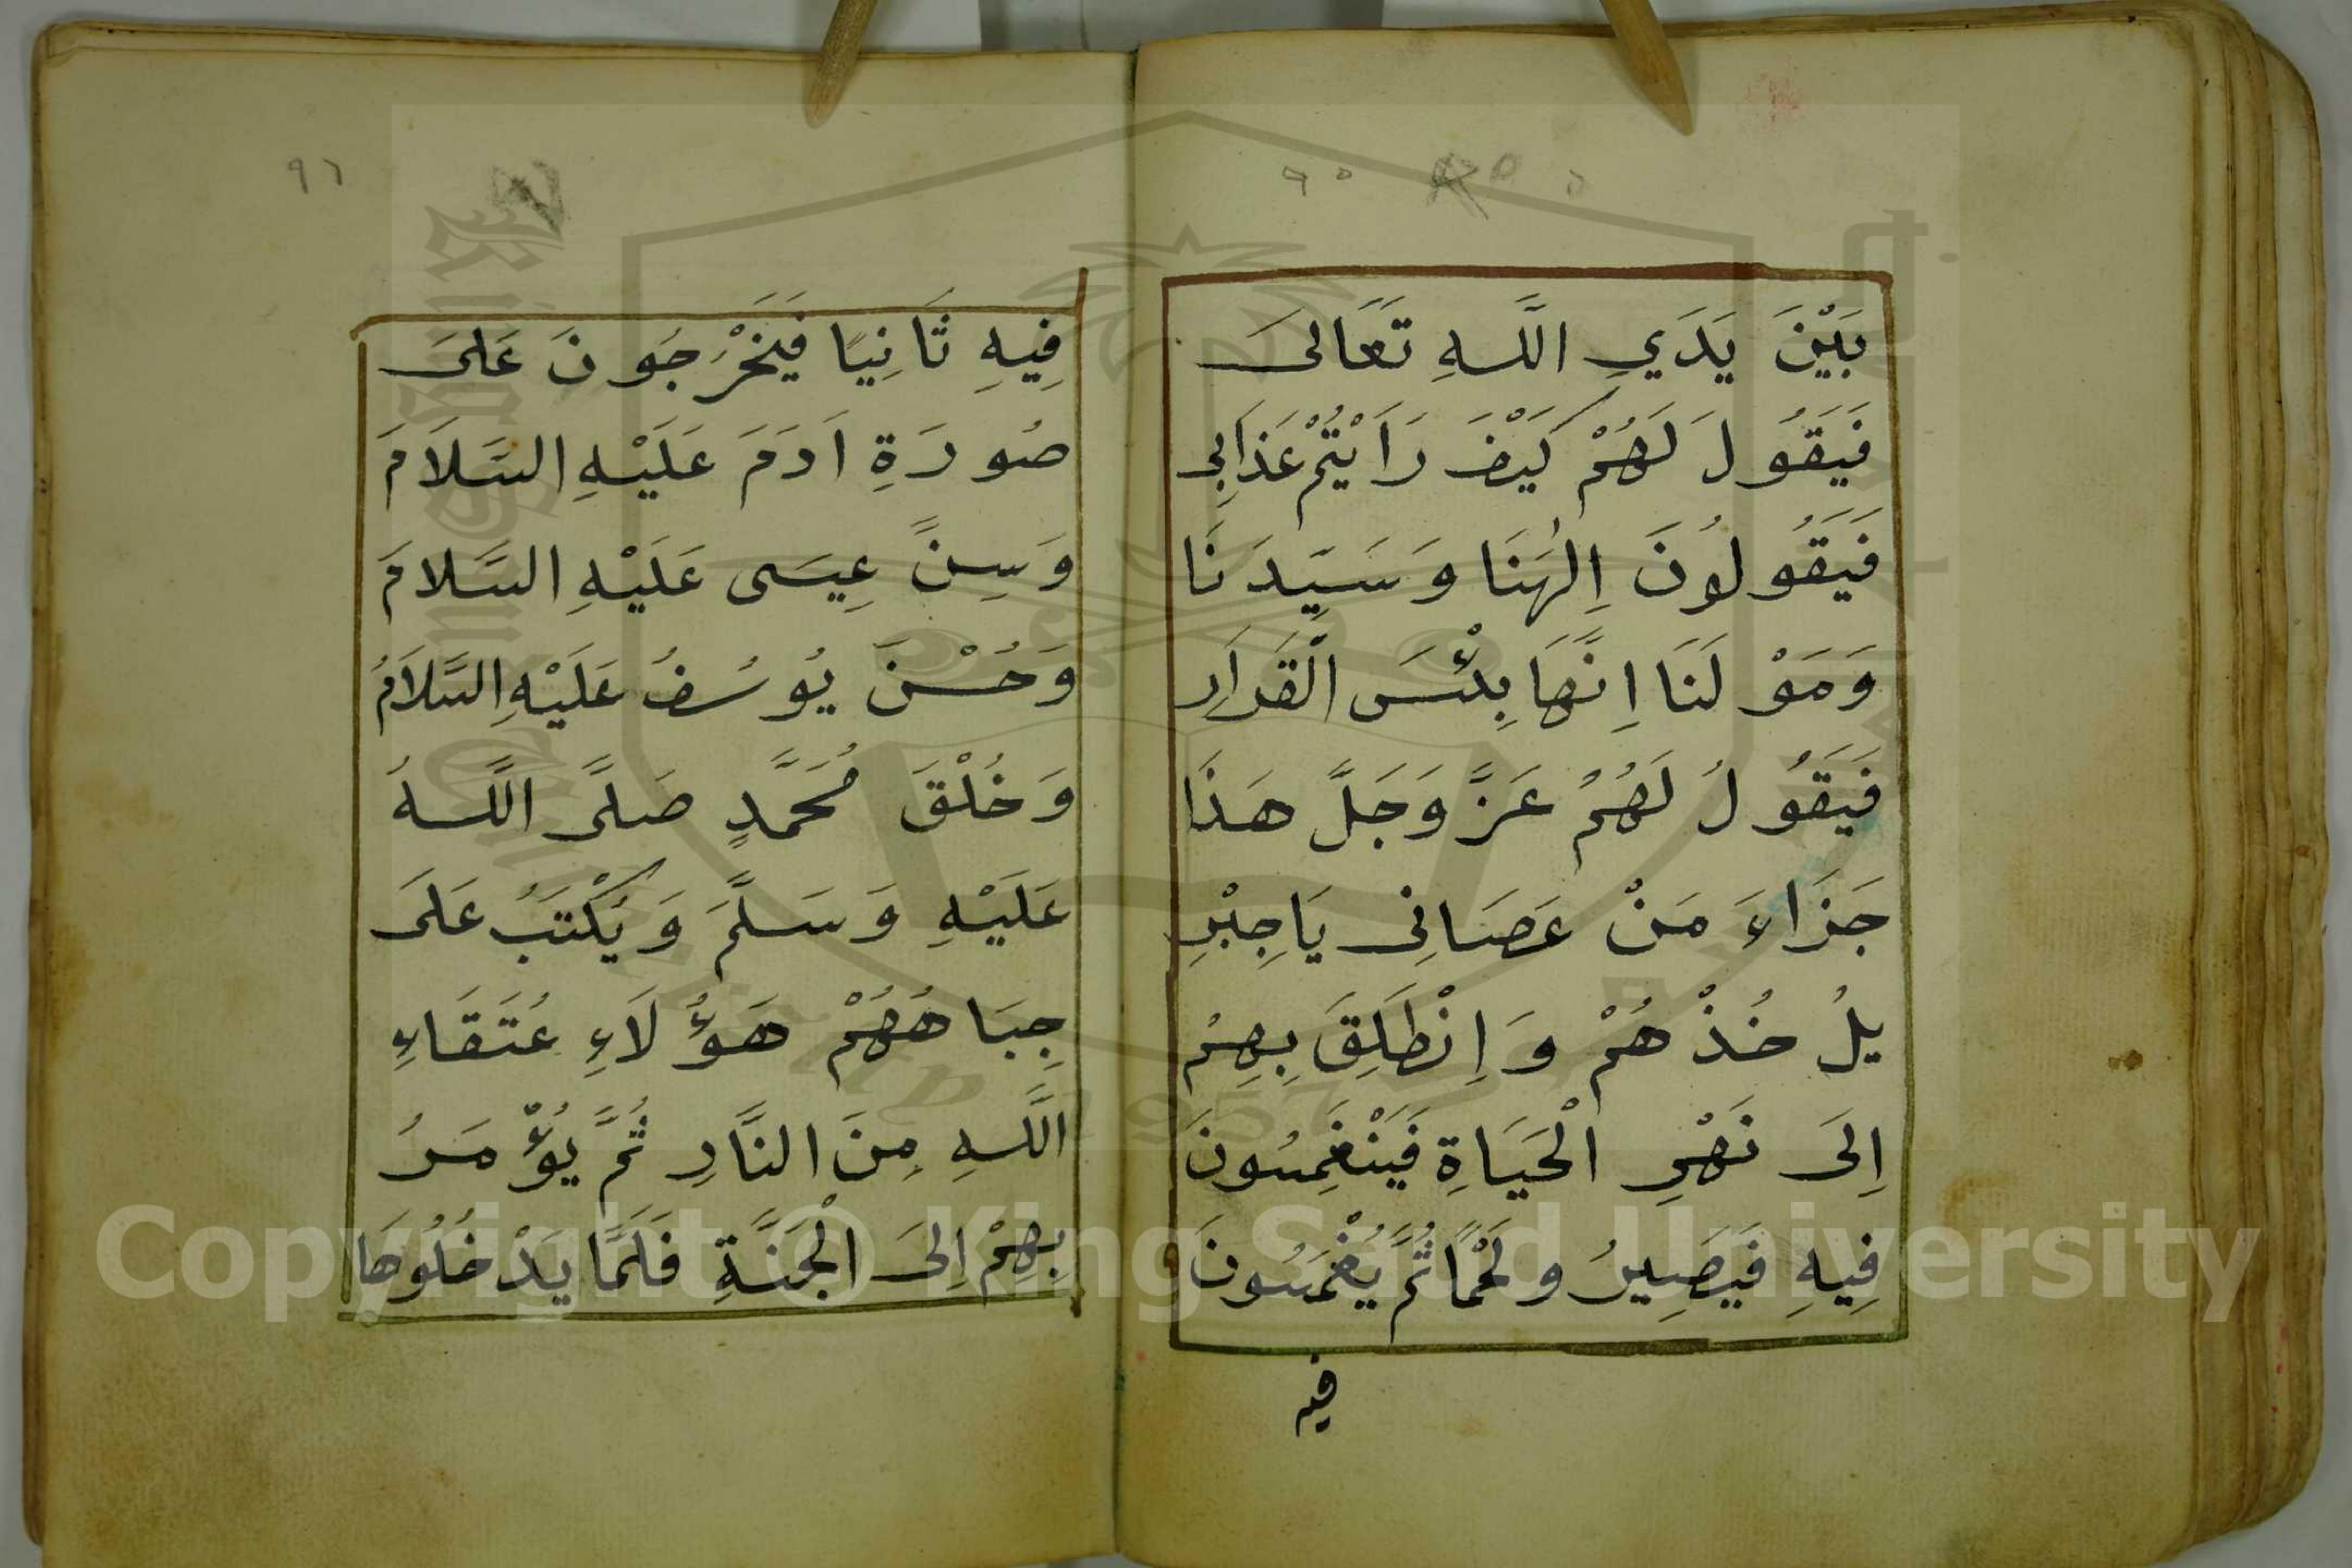 ٩٥
بَيْنَ يَدَيِ اللَّهِ تَعَالىَ
فَيَقُولَ لَهُمْ كَيْفَ رَاَيْتُمْ عَذَابِى
فَيَقُولُونَ اِلٰهَنَا وَسَيِّدَنَا
وَمَوْلَنَا اِنَّهَا بِئْسَ الْقَرَارِ
فَيَقُولُ لَهُمُ عَزَّ وَجَلَّ هَذَا
جَزَاءَ مَنْ عَصَانِى يَاجِبْرِ
يلُ خُذْهُمْ وَإِنْطَلِقَ بِهِمْ
اِلَى نَهْرِ الْحَيَاةِ فَيَنْغَمِسُونَ
فِيهِ فَيَصِيرُ ولَحْمًا ثُمَّ يُغْمَسُونَ
فيه
٩٦
فِيهِ ثَانِيًا فَيَخْرُجُونَ عَلىَ
صُورَةِ اَدَمَ عَلَيْهِ السَّلاَمَ
وَسِنًّ عِيسَى عَلَيْهِ السَّلامَ
وَحُسْنَ يُوسُفُ عَلَيْهِ السَّلاَمُ
وَخُلْقَ مُحَمَّدٍ صَلىَّ اللَّهُ
عَلَيْهِ وَسَلَّمَ وَيُكْتَبُ عَلىَ
جِبَاهُهُمْ هَؤُلَاءِ عُتَقَاءِ
اللَّهِ مِنَ النَّارِ ثُمَّ يُؤْمَرُ
بِهِمْ اِلىَ الْجَنَّةِ فَلَمَّا يَدْخُلُوهَا
Copyright © King Saud University
1957